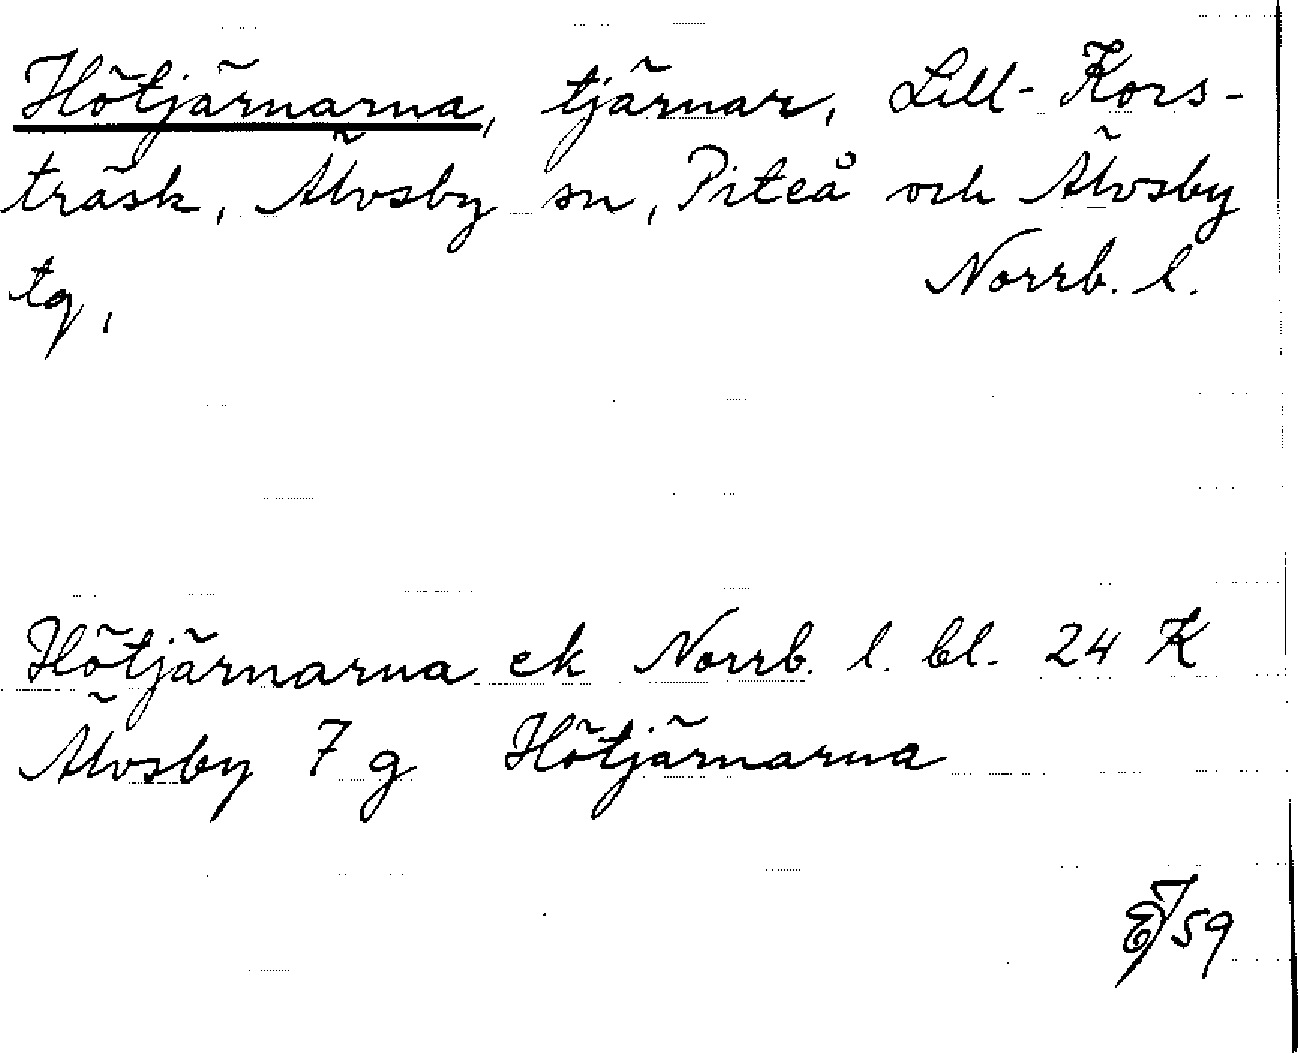 Hötjärnarna, tjärnar, Lill-Kors-
träsk, Älvsby sn, Piteå och Älvsby
tg, Norrb. l.
Hötjärnarna ek Norrb. l. bl. 24 K
Älvsby 7 g Hötjärnarna
59